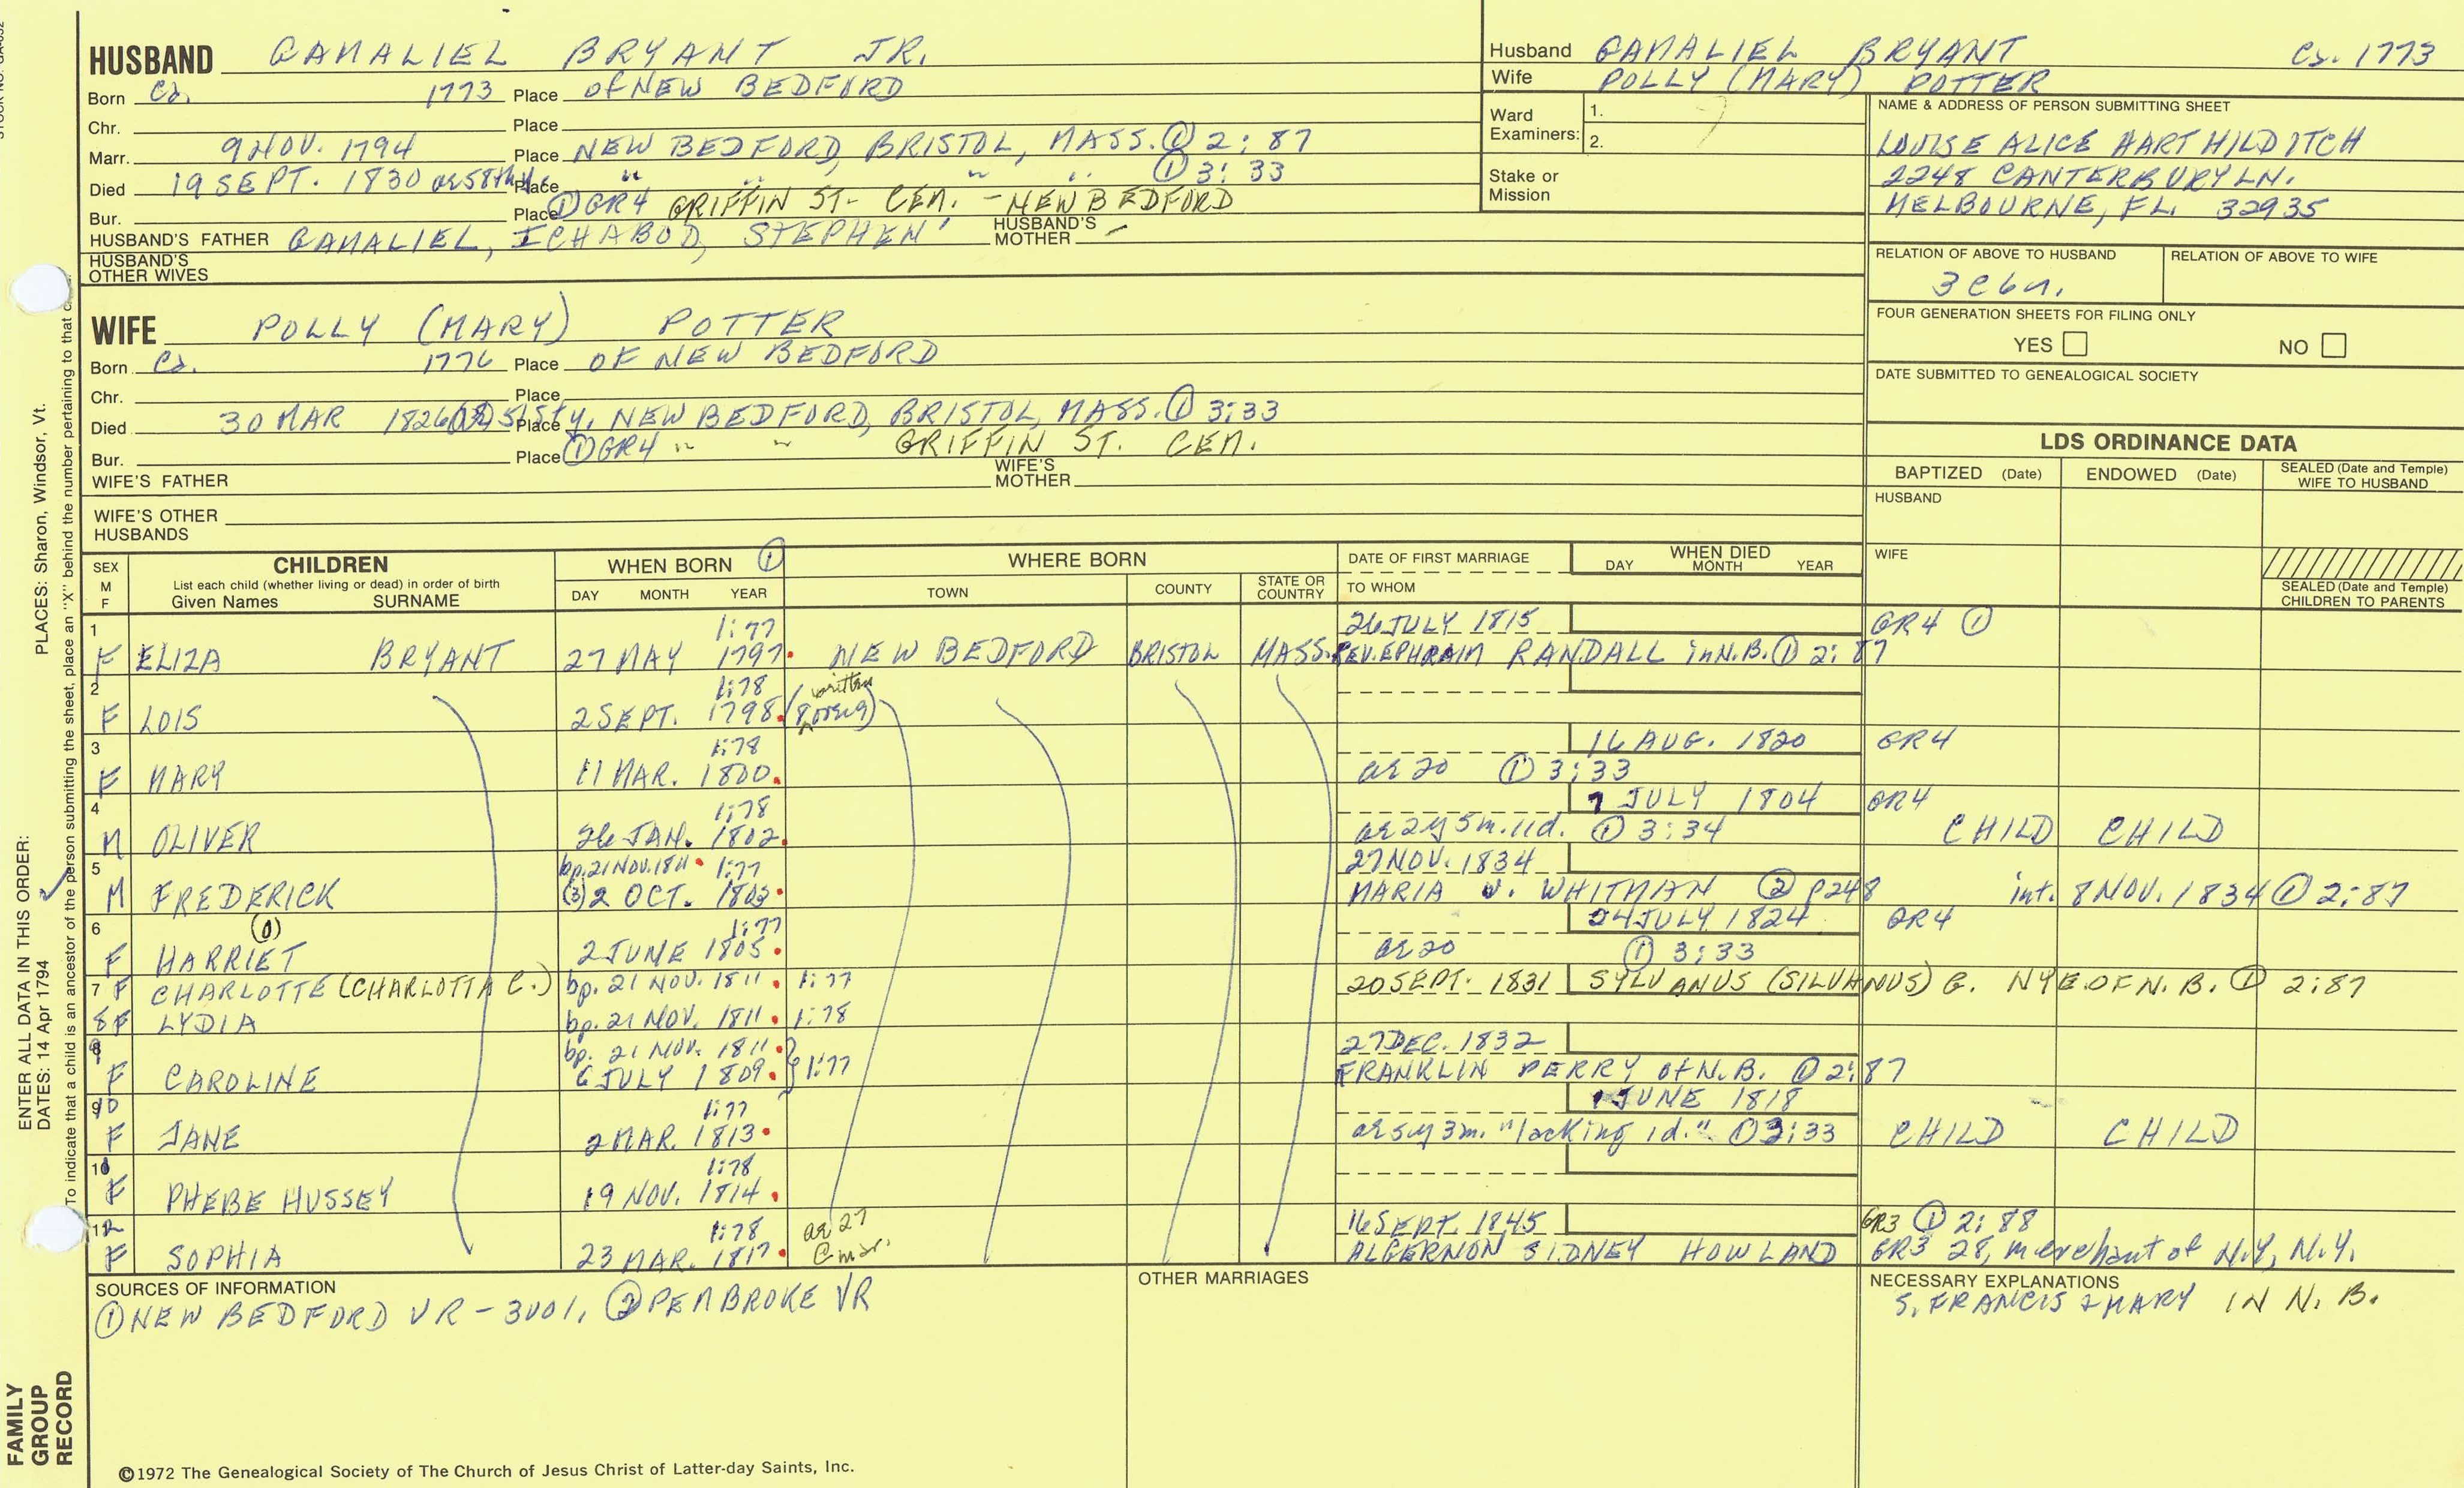 HUSBAND GAMALIEL BRYANT JR.
Born Ca. 1773 Place of NEW BEDFORD
Chr. Place
Marr. 9 NOV. 1794 Place NEW BEDFORD, BRISTOL, MASS. ① 2:87
Died 19 SEPT. 1830 ae 58th Place " " " " ① 3:33
Bur. Place ① GR4 GRIFFIN ST- CEM. - NEW BEDFORD
HUSBAND'S FATHER GAMALIEL, ICHABOD, STEPHEN' HUSBAND'S MOTHER
HUSBAND'S OTHER WIVES
Husband GAMALIEL BRYANT Ca. 1773
Wife POLLY (MARY) POTTER
Ward Examiners: 1.
2.
Stake or Mission
NAME & ADDRESS OF PERSON SUBMITTING SHEET
LOUISE ALICE HART HILDITCH
2248 CANTERBURY LN.
MELBOURNE, FL. 32935
RELATION OF ABOVE TO HUSBAND RELATION OF ABOVE TO WIFE
3 C 6 r.
FOUR GENERATION SHEETS FOR FILING ONLY
YES NO
DATE SUBMITTED TO GENEALOGICAL SOCIETY
WIFE POLLY (MARY) POTTER
Born Ca. 1776 Place OF NEW BEDFORD
Chr. Place
Died 30 MAR 1826 Place NEW BEDFORD, BRISTOL, MASS. ① 3:33
Bur. Place ① GR4 " " GRIFFIN ST. CEM.
WIFE'S FATHER WIFE'S MOTHER
WIFE'S OTHER HUSBANDS
LDS ORDINANCE DATA
BAPTIZED (Date) ENDOWED (Date) SEALED (Date and Temple) WIFE TO HUSBAND
HUSBAND
WIFE
SEALED (Date and Temple) CHILDREN TO PARENTS
SEX M F
CHILDREN
List each child (whether living or dead) in order of birth
Given Names SURNAME
WHEN BORN ①
DAY MONTH YEAR
WHERE BORN
TOWN COUNTY STATE OR COUNTRY
DATE OF FIRST MARRIAGE
TO WHOM
WHEN DIED
DAY MONTH YEAR
1 1:77 26 JULY 1815 GR4 ①
F ELIZA BRYANT 27 MAY 1797. NEW BEDFORD BRISTOL MASS. REV. EPHRAIM RANDALL in N.B. ① 2:87
2 1:78 (written
F LOIS 2 SEPT. 1798.
3 1:78 16 AUG. 1820 GR4
F MARY 11 MAR. 1800. ae 20 ① 3:33
4 1:78 7 JULY 1804 GR4
M OLIVER 26 JAN. 1802. ae 2y 5m. 11d. ① 3:34 CHILD CHILD
5 bp. 21 NOV. 1811. 1:77 27 NOV. 1834
M FREDERICK (3) 2 OCT. 1803. MARIA W. WHITMAN ② p248 int. 8 NOV. 1834 ① 2:87
6 (0) 1:77 24 JULY 1824 GR4
F HARRIET 2 JUNE 1805. ae 20 ① 3:33
7 F CHARLOTTE (CHARLOTTA C.) bp. 21 NOV. 1811. 1:77 20 SEPT. 1831 SYLVANUS (SILVANUS) G. NYE OF N.B. ① 2:87
8 F LYDIA bp. 21 NOV. 1811. 1:78
9 bp. 21 NOV. 1811. 27 DEC. 1832
F CAROLINE 6 JULY 1809. } 1:77 FRANKLIN PERRY of N.B. ① 2:87
10 1:77 1 JUNE 1818
F JANE 2 MAR. 1813. ae 5y 3m. "lacking 1d." ① 3:33 CHILD CHILD
11 1:78
F PHEBE HUSSEY 19 NOV. 1814.
12 1:78 ae 27 16 SEPT. 1845 GR3 ① 2:88
F SOPHIA 23 MAR. 1817. @ mar. ALGERNON SIDNEY HOWLAND GR3 28, merchant of N.Y., N.Y.
SOURCES OF INFORMATION
① NEW BEDFORD VR - 3001, ② PEMBROKE VR
OTHER MARRIAGES
NECESSARY EXPLANATIONS
S. FRANCIS & MARY IN N. B.
©1972 The Genealogical Society of The Church of Jesus Christ of Latter-day Saints, Inc.
ENTER ALL DATA IN THIS ORDER:
DATES: 14 Apr 1794 PLACES: Sharon, Windsor, Vt.
To indicate that a child is an ancestor of the person submitting the sheet, place an "X" behind the number pertaining to that
FAMILY GROUP RECORD